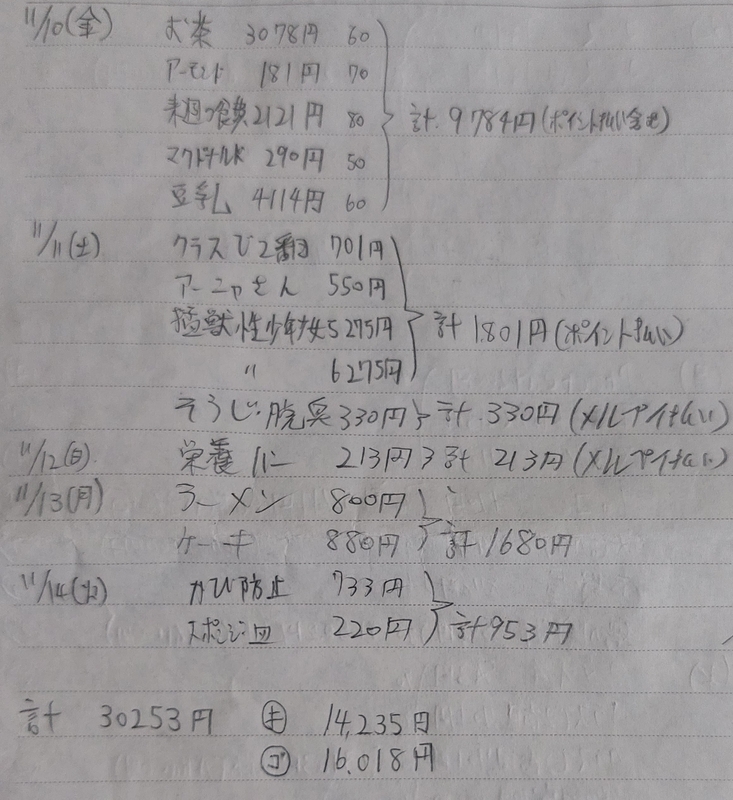 11/10(金) お茶 3078円 60
アーモンド 181円 70
来週の食糞 2121円 80
マクドナルド 290円 50
豆乳 4114円 60
計 9784円(ポイント払い含む)
11/11(土) クラスで2番目 701円
アーニャさん 550円
猛獣性少年少女5 275円
〃 6 275円
計 1801円(ポイント払い)
そうじ・脱臭 330円 計 330円(メルペイ払い)
11/12(日) 栄養バー 213円 計 213円(メルペイ払い)
11/13(月) ラーメン 800円
ケーキ 880円 計 1680円
11/14(火) カビ防止 733円
スポンジ・皿 220円 計 953円
計 30253円 キ 14,235円
ゴ 16,018円